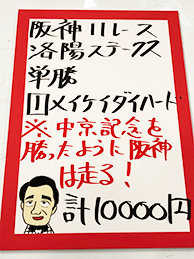 阪神11レース
洛陽ステークス
単勝
11メイケイダイハード
※中京記念を
勝ったように阪神
は走る!
計10000円